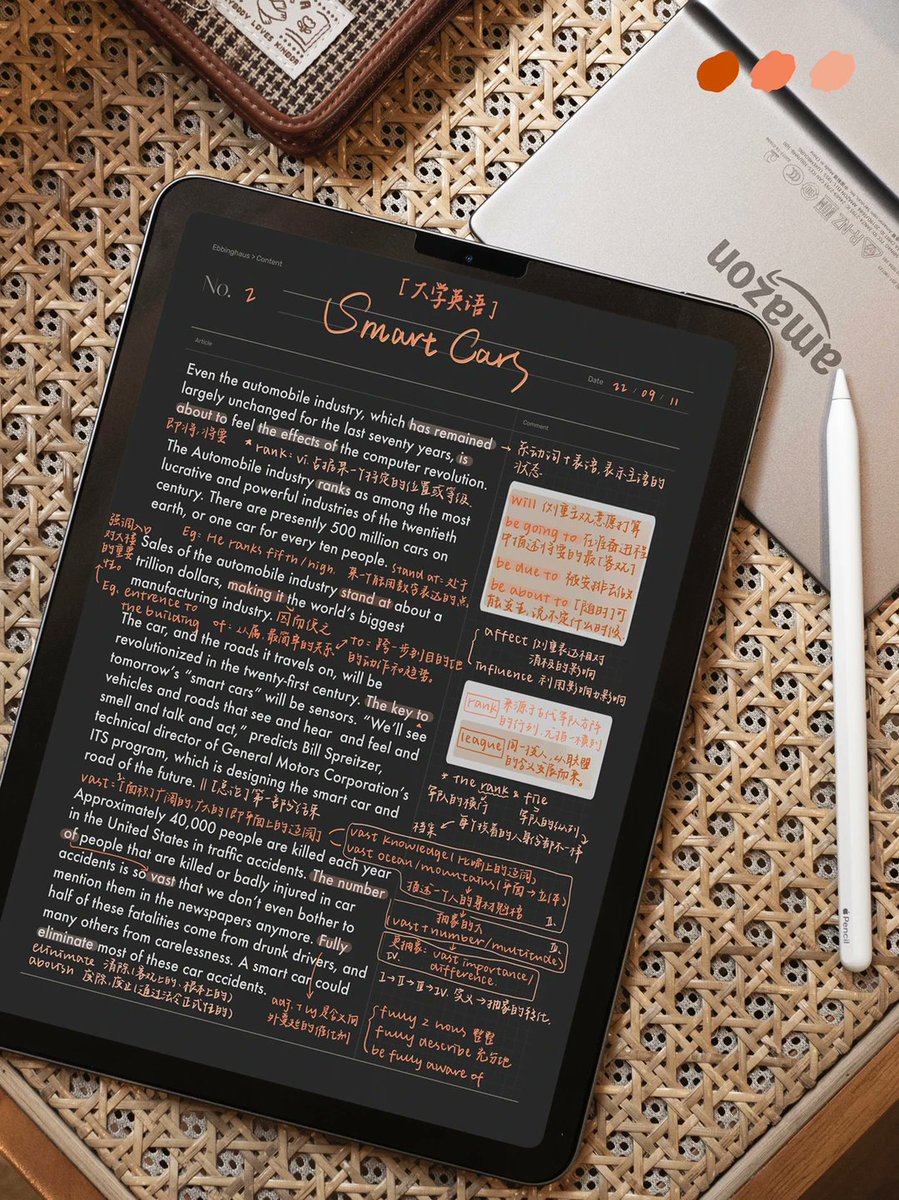 amazon
Ebbinghaus > Content
No. 2
[大学英语]
Smart Cars
Date 22 / 09 / 11
Article
Comment
Even the automobile industry, which has remained
largely unchanged for the last seventy years, is
about to feel the effects of the computer revolution.
即将,将要
* rank: vi. 占据某一个特定的位置或等级
The Automobile industry ranks as among the most
lucrative and powerful industries of the twentieth
century. There are presently 500 million cars on
earth, or one car for every ten people.
Eg: He ranks fifth/high.
stand at: 处于
某一能用数字表达的点
强调入口
对大楼
的重要
性。
Sales of the automobile industry stand at about a
trillion dollars, making it the world's biggest
manufacturing industry.
因而使之
Eg. entrance to
the building
of: 从属,最简单的关系
to: 跨一步到目的地
的动作和趋势。
The car, and the roads it travels on, will be
revolutionized in the twenty-first century. The key to
tomorrow's "smart cars" will be sensors. "We'll see
vehicles and roads that see and hear and feel and
smell and talk and act," predicts Bill Spreitzer,
technical director of General Motors Corporation's
ITS program, which is designing the smart car and
road of the future.
vast: ①[面积]广阔的,广大的[即平面上的辽阔]
Approximately 40,000 people are killed each year
in the United States in traffic accidents. The number
of people that are killed or badly injured in car
accidents is so vast that we don't even bother to
mention them in the newspapers anymore. Fully
half of these fatalities come from drunk drivers, and
many others from carelessness. A smart car could
eliminate most of these car accidents.
eliminate 消除(客观上的,根本上的)
abolish 废除,废止(通过法令正式性的)
系动词+表语,表示主语的
状态
will 侧重主观意愿打算
be going to 在准备过程
中描述将要的最[客观]
be due to 被安排去做
be about to [随时]可
能发生,说不定什么时候
affect 侧重表达相对
消极的影响
influence 利用影响力影响
rank 来源于古代军队方阵
的行列,尤指一横列
league 同一类人,从联盟
的含义发展而来。
* the rank & file
军队的横门
军队的纵列
vast knowledge(比喻上的辽阔)
vast ocean/mountains(平面→立体)
描述一个人的身材魁梧
II.
抽象的大
vast + number/multitude
III.
更抽象: vast importance/
difference.
IV.
I→II→III→IV. 实义→抽象的转化.
fully 2 hours 整整
fully describe 充分地
be fully aware of
Pencil